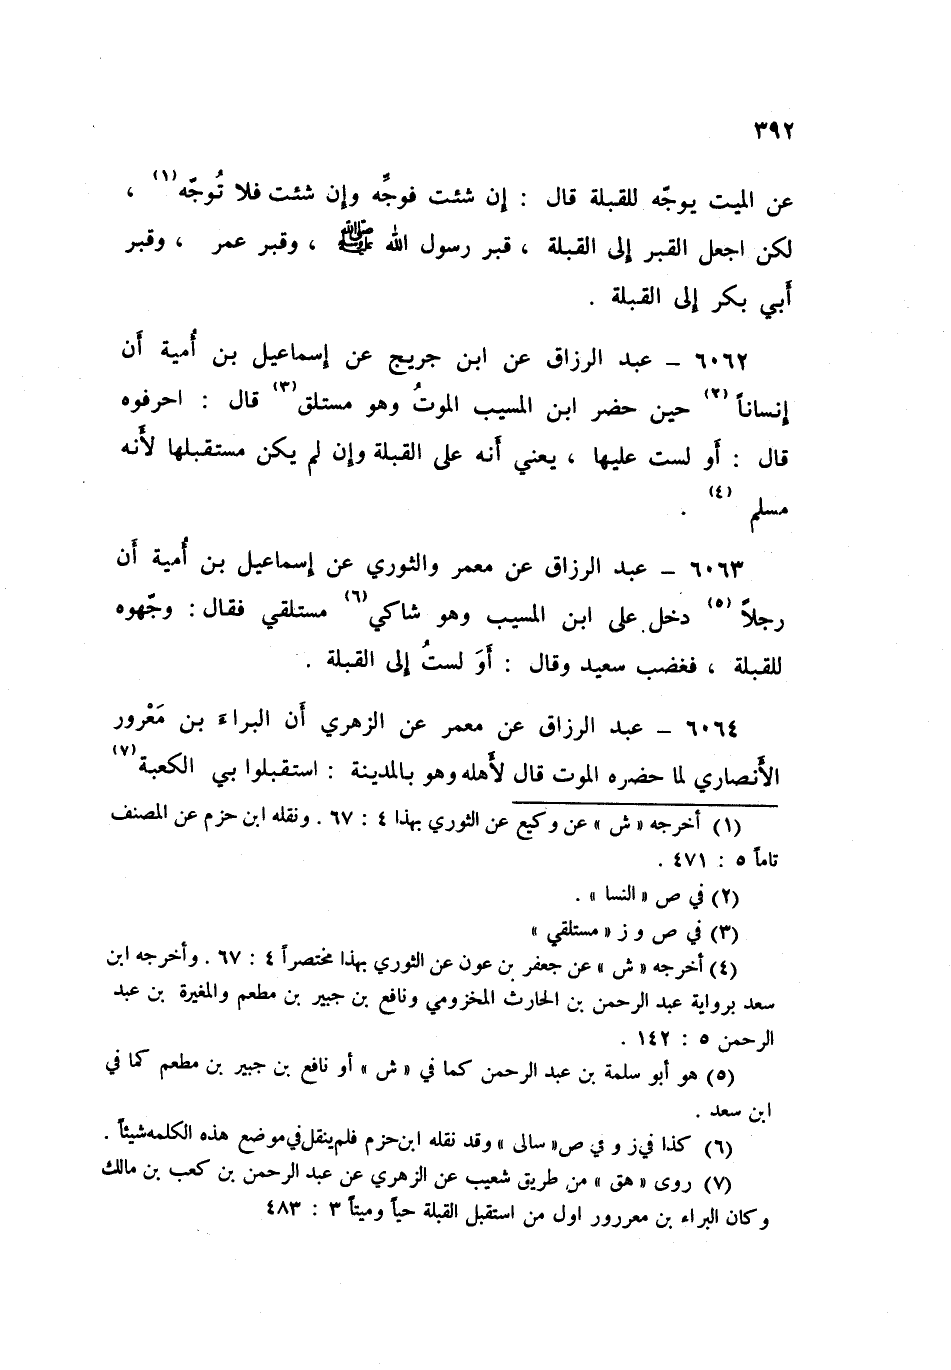 ٣٩٢
عن الميت يوجّه للقبلة قال : إن شئت فوجِّه وإن شئت فلا تُوجّه(١) ،
لكن اجعل القبر إلى القبلة ، قبر رسول الله ﷺ ، وقبر عمر ، وقبر
أبي بكر إلى القبلة .
٦٠٦٢ – عبد الرزاق عن ابن جريج عن إسماعيل بن أُمية أن
إنساناً(٢) حين حضر ابن المسيب الموتُ وهو مستلق(٣) قال : احرفوه
قال : أو لست عليها ، يعني أنه على القبلة وإن لم يكن مستقبلها لأنه
مسلم(٤) .
٦٠٦٣ – عبد الرزاق عن معمر والثوري عن إسماعيل بن أُمية أن
رجلاً(٥) دخل على ابن المسيب وهو شاكي(٦) مستلقي فقال : وجّهوه
للقبلة ، فغضب سعيد وقال : أوَ لستُ إلى القبلة .
٦٠٦٤ – عبد الرزاق عن معمر عن الزهري أن البراء بن مَعْرور
الأنصاري لما حضره الموت قال لأهله وهو بالمدينة : استقبلوا بي الكعبة(٧)
(١) أخرجه « ش » عن وكيع عن الثوري بهذا ٤ : ٦٧ . ونقله ابن حزم عن المصنف
تاماً ٥ : ٤٧١ .
(٢) في ص « النسا » .
(٣) في ص و ز « مستلقي »
(٤) أخرجه « ش » عن جعفر بن عون عن الثوري بهذا مختصراً ٤ : ٦٧ . وأخرجه ابن
سعد برواية عبد الرحمن بن الحارث المخزومي ونافع بن جبير بن مطعم والمغيرة بن عبد
الرحمن ٥ : ١٤٢ .
(٥) هو أبو سلمة بن عبد الرحمن كما في « ش » أو نافع بن جبير بن مطعم كما في
ابن سعد .
(٦) كذا في ز و في ص« سالى » وقد نقله ابن حزم فلم ينقل في موضع هذه الكلمه شيئاً .
(٧) روى « هق » من طريق شعيب عن الزهري عن عبد الرحمن بن كعب بن مالك
وكان البراء بن معررور اول من استقبل القبلة حياً وميتاً ٣ : ٤٨٣